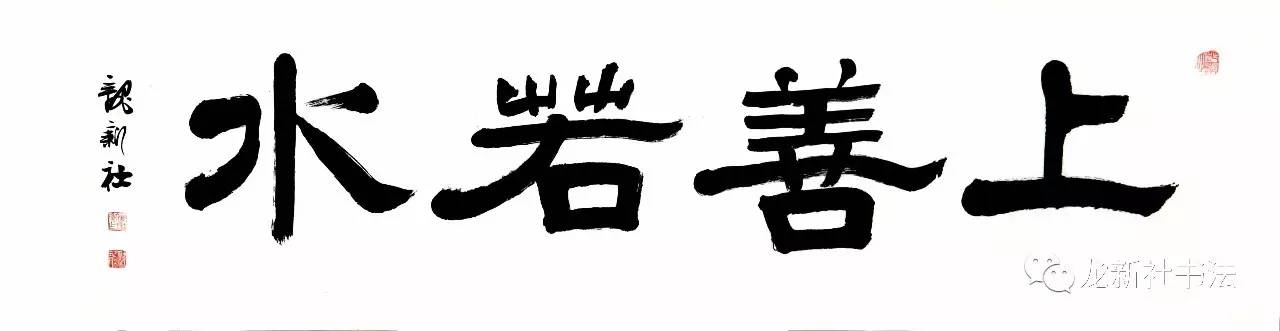 上善若水
龙新社
龙新社书法